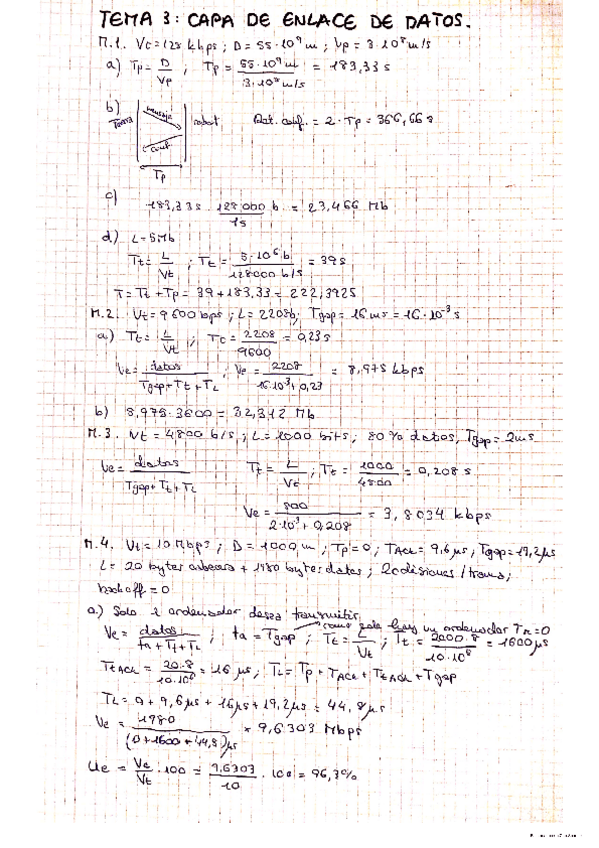 TEMA 3: CAPA DE ENLACE DE DATOS.
M.1. Vt=128 kbps ; D = 55·10⁹ m ; Vp = 3·10⁸ m/s
a) Tp = D/Vp ; Tp = 55·10⁹ m / 3·10⁸ m/s = 183,33 s
b) Tierra mensaje robot conf. Tp Ret. conf. = 2·Tp = 366,66 s
c) 183,33 s · 128.000 b / 1s = 23,466 Mb
d) L=5Mb
Tt = L/Vt ; Tt = 5·10⁶ b / 128000 b/s = 39s
T = Tt + Tp = 39 + 183,33 = 222,3925
M.2. Vt=9600 bps ; L=2208b; Tgap = 16 ms = 16·10⁻³ s
a) Tt = L/Vt ; Tt = 2208/9600 = 0,23 s
Ve = datos / Tgap+Tt+TL ; Ve = 2208 / 16·10⁻³+0,23 = 8,975 kbps
b) 8,975·3600 = 32,312 Mb
M.3. Vt = 4800 b/s ; L=1000 bits; 80% datos, Tgap=2ms.
Ve = datos / Tgap+Tt+TL Tt = L/Vt ; Tt = 1000/4800 = 0,208 s.
Ve = 800 / 2·10⁻³+0,208 = 3,8034 kbps
M.4. Vt = 10 Mbps ; D = 1000 m ; Tp=0 ; TACK = 9,6 μs, Tgap=19,2μs
L = 20 bytes cabecera + 1980 bytes datos ; 2 colisiones / trama ;
backoff = 0
a.) Solo 1 ordenador desea transmitir
como solo hay un ordenador TR=0
Ve = datos / ta+Tt+TL ; ta = Tgap ; Tt = L/Vt ; Tt = 2000·8 / 10·10⁶ = 1600μs
TtACK = 20·8 / 10·10⁶ = 16 μs ; TL = Tp + TACK + TtACK + Tgap
TL = 0 + 9,6μs + 16μs + 19,2μs = 44,8μs
Ve = 1980 / (0+1600+44,8)μs = 9,6303 Mbps
Ue = Ve/Vt · 100 = 9,6303/10 · 100 = 96,3%